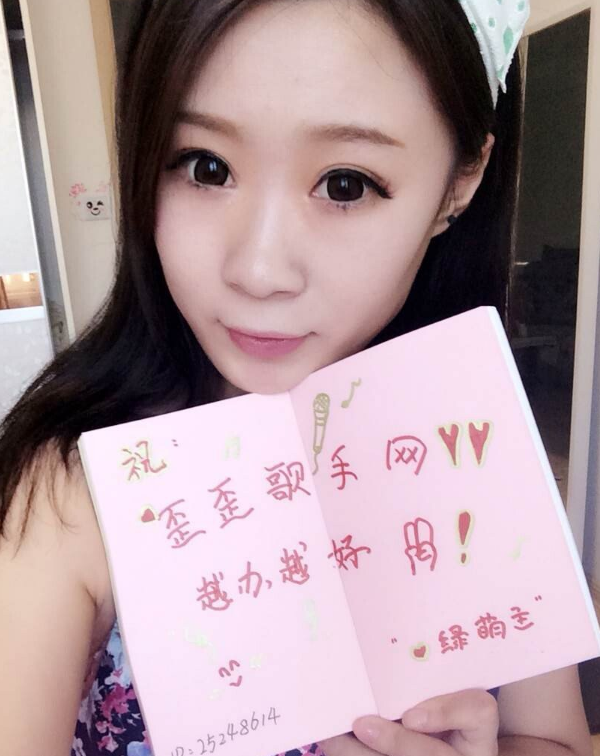 祝：
歪歪歌手网
越办越好！
"绿萌主"
ID：25248614